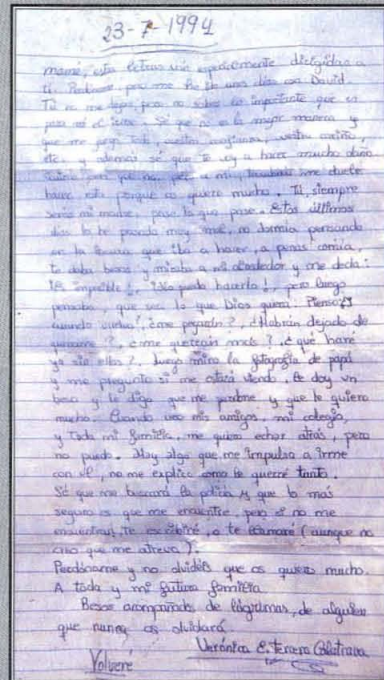 23-7-1994
mamá, estas letras van especialmente dirigidas a
ti. Perdóname pero me he ido unos días con David.
Tú no me dejas, pero no sabes lo importante que es
para mí el irme. Sé que no es la mejor manera y
que me juego todo, vuestra confianza, vuestro cariño,
etc. y además sé que te voy a hacer mucho daño
pero a mí, también me duele
hacer esto porque os quiero mucho. Tú, siempre
serás mi madre, pase lo que pase. Estos últimos
días lo he pasado muy mal, no dormía pensando
en la locura que iba a hacer, a penas comía,
te daba besos y miraba a mi alrededor y me decía:
¡Es imposible!, ¡No puedo hacerlo!, pero luego
pensaba, que sea lo que Dios quiera. Pienso y
cuando vuelva, ¿me pegarán?, ¿Habrán dejado de
quererme?, ¿me querrán más?, ¿qué haré
yo sin ellos?, luego miro la fotografía de papá
y me pregunto si me estará viendo, le doy un
beso y le digo que me perdone y que le quiero
mucho. Cuando veo mis amigos, mi colegio,
y toda mi familia, me quiero echar atrás, pero
no puedo. Hay algo que me impulsa a irme
con él, no me explico como le querré tanto.
Sé que me buscará la policía y que lo más
seguro es que me encuentre, pero si no me
encuentran, te escribiré, o te llamaré (aunque no
creo que me atreva).
Perdóname y no olvidéis que os quiero mucho.
A toda y mi futura familia
Besos acompañados de lágrimas, de alguien
que nunca os olvidará
Verónica E. Tercero Calatrava
Volveré